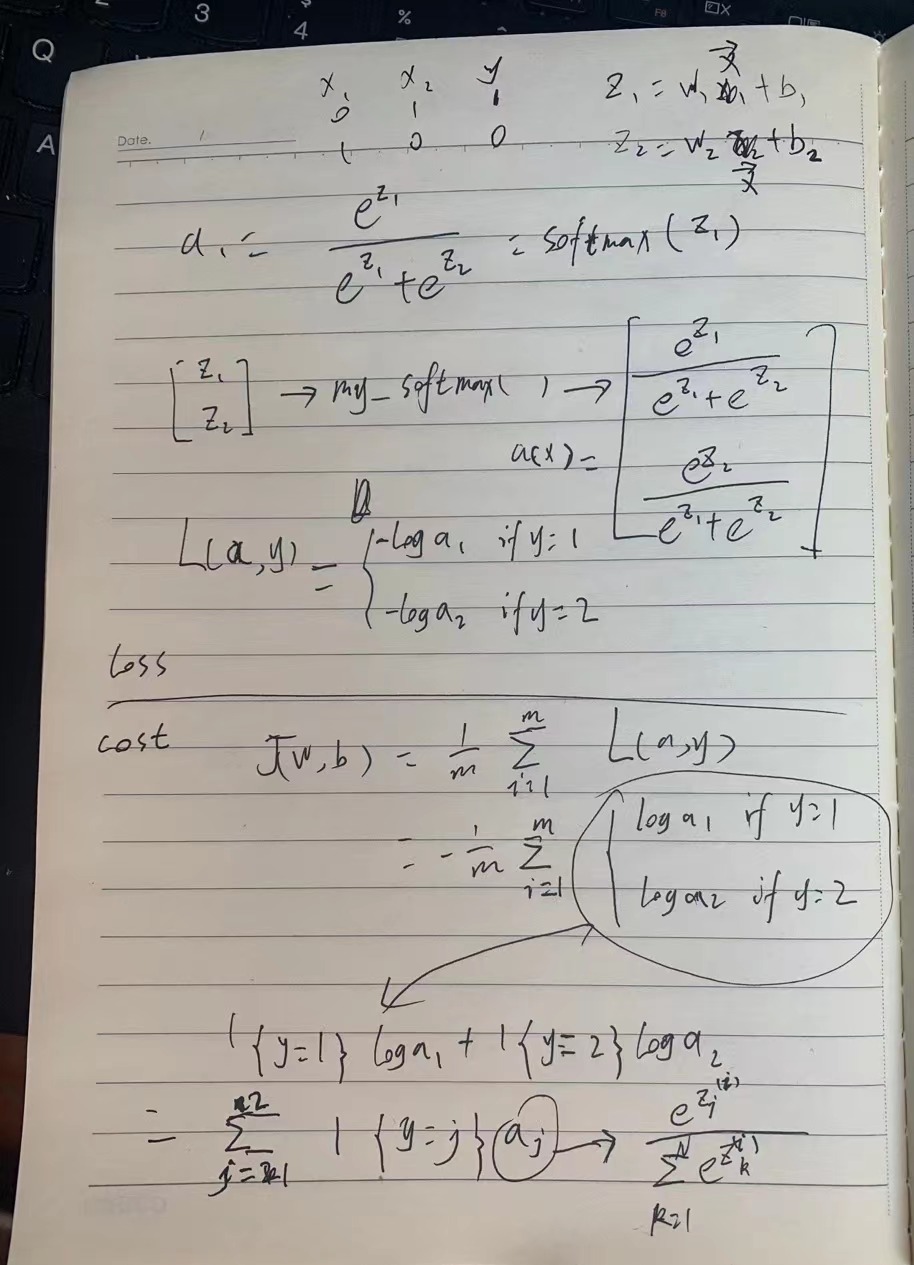 Q 3 4 %
A
F8
x₁ x₂ y
0 1 1
1 0 0
Date.
z₁ = w₁ x⃗ + b₁
z₂ = w₂ x⃗ + b₂
a₁ = e^{z₁} / (e^{z₁} + e^{z₂}) = softmax(z₁)
[z₁ z₂] → my_softmax( ) → [e^{z₁} / (e^{z₁} + e^{z₂})
a(x) = e^{z₂} / (e^{z₁} + e^{z₂})]
L(a,y) = { -log a₁ if y=1
-log a₂ if y=2
loss
cost J(w,b) = 1/m ∑_{i=1}^{m} L(a,y)
= - 1/m ∑_{i=1}^{m} { log a₁ if y=1
log a₂ if y=2
1{y=1} log a₁ + 1{y=2} log a₂
= ∑_{j=1}^{2} 1{y=j} a_j → e^{z_j^{(i)}} / ∑_{k=1}^{N} e^{z_k^{(i)}}